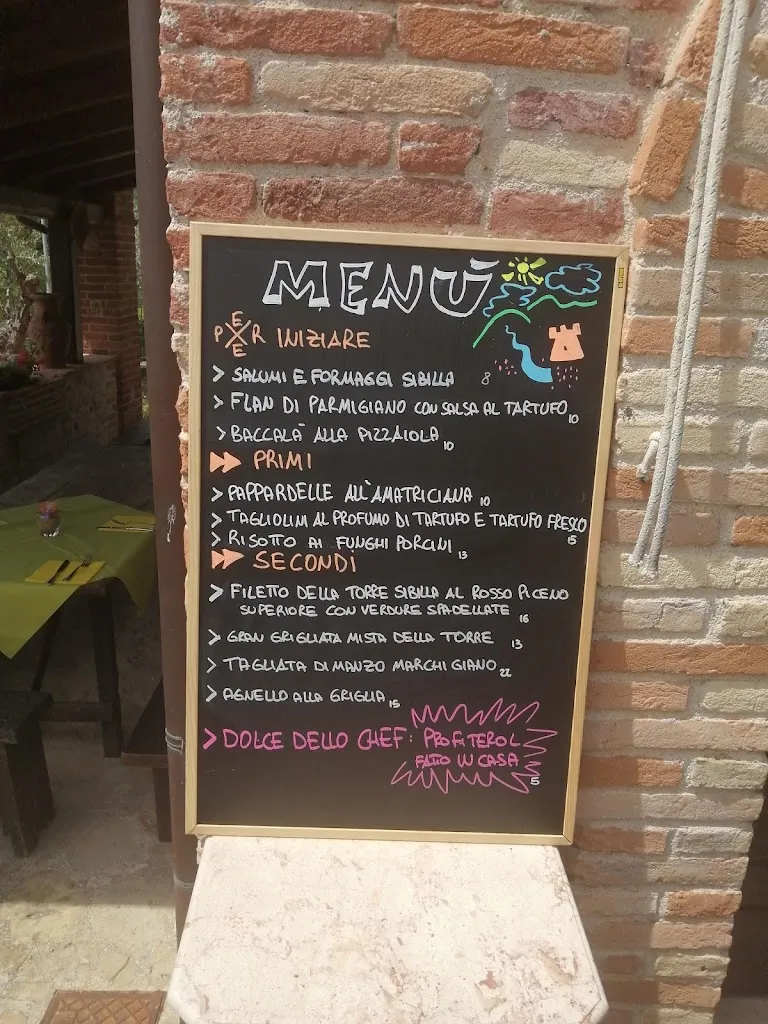 MENÙ
PER INIZIARE
> SALUMI E FORMAGGI SIBILLA 8
> FLAN DI PARMIGIANO CON SALSA AL TARTUFO 10
> BACCALÀ ALLA PIZZAIOLA 10
PRIMI
> PAPPARDELLE ALL'AMATRICIANA 10
> TAGLIOLINI AL PROFUMO DI TARTUFO E TARTUFO FRESCO 15
> RISOTTO AI FUNGHI PORCINI 13
SECONDI
> FILETTO DELLA TORRE SIBILLA AL ROSSO PICENO
SUPERIORE CON VERDURE SPADELLATE 16
> GRAN GRIGLIATA MISTA DELLA TORRE 13
> TAGLIATA DI MANZO MARCHIGIANO 22
> AGNELLO ALLA GRIGLIA 15
> DOLCE DELLO CHEF: PROFITEROL
FATTO IN CASA 5